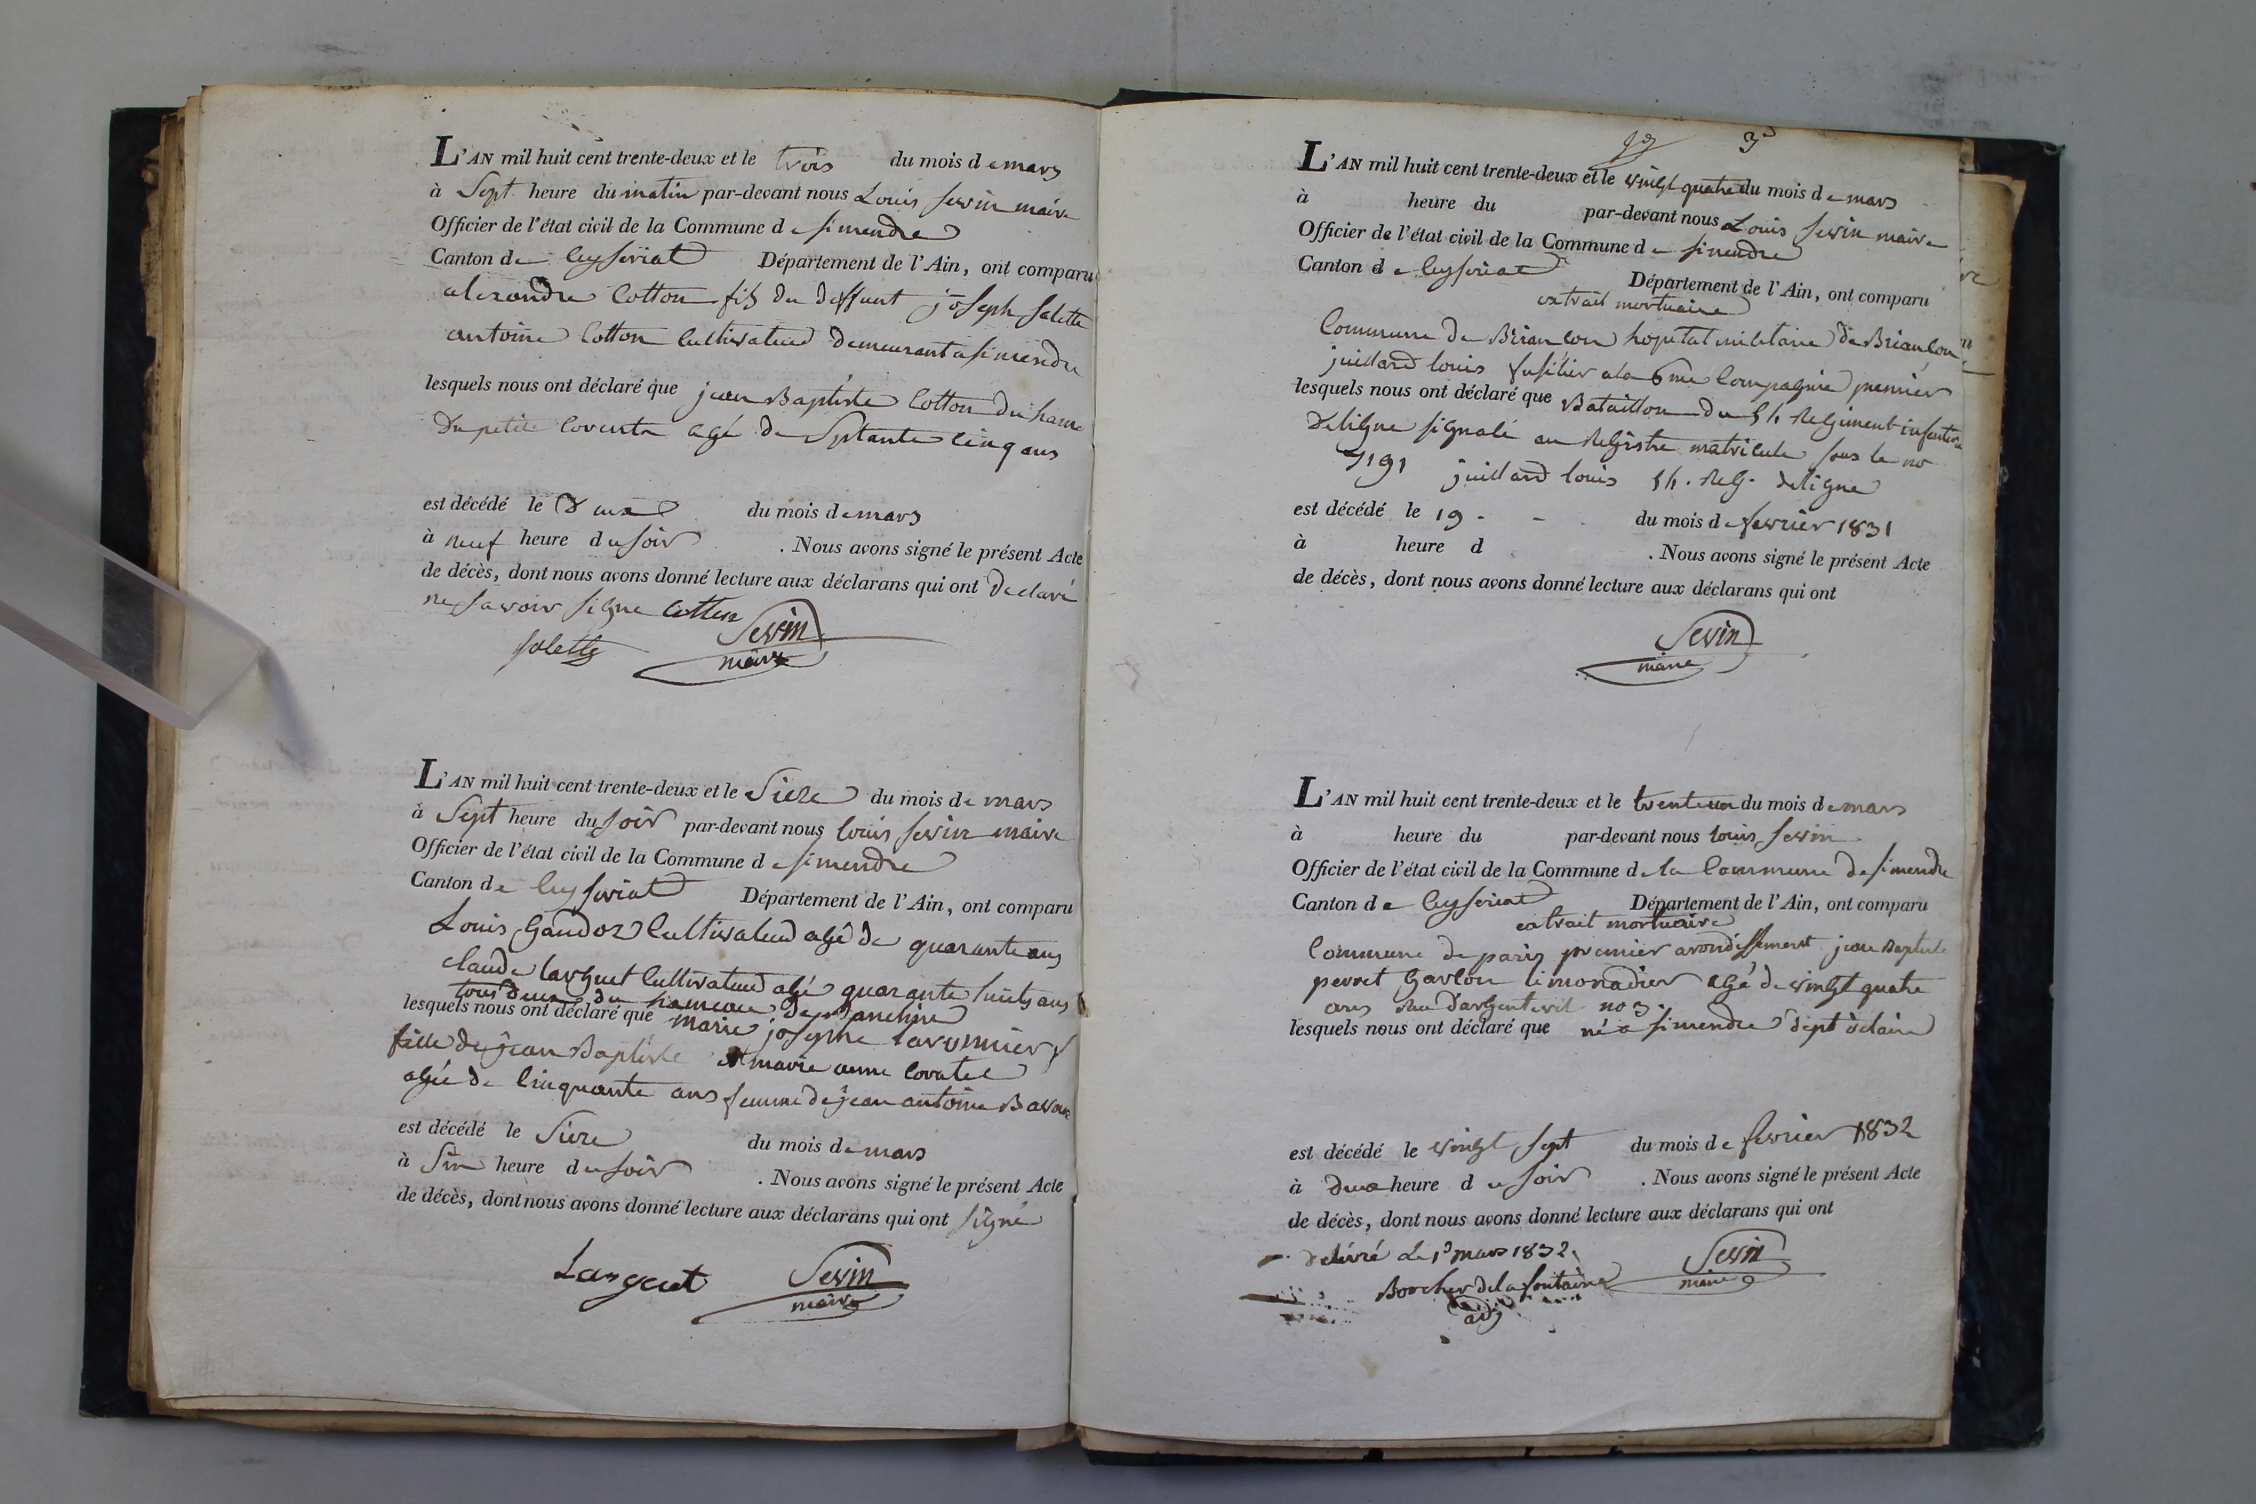 L'AN mil huit cent trente-deux et le trois du mois de mars
à Sept heure du matin par-devant nous Louis sevin maire
Officier de l'état civil de la Commune de simendre
Canton de Ceyseriat Département de l'Ain, ont comparu
alexandre Cotton fils du deffunt joseph salette
antoine Cotton Cultivateur demeurant a simendre
lesquels nous ont déclaré que jean Baptiste Cotton du hame
du petit agé de Septante cinq ans
est décédé le deux du mois de mars
à neuf heure du soir . Nous avons signé le présent Acte
de décès, dont nous avons donné lecture aux déclarans qui ont declaré
ne savoir signe Cotton
Sevin
salette
maire
L'AN mil huit cent trente-deux et le Sieze du mois de mars
à Sept heure du soir par-devant nous louis sevin maire
Officier de l'état civil de la Commune de simendre
Canton de Ceyseriat Département de l'Ain, ont comparu
Louis Gandoz Cultivateur agé de quarante ans
claude Cultivateur agé quarante huits ans
tous deux du hameau de
lesquels nous ont déclaré que marie josephe
fille de jean Baptiste et marie anne
agée de Cinquante ans femme de jean antoine
est décédé le Sieze du mois de mars
à Six heure du soir . Nous avons signé le présent Acte
de décès, dont nous avons donné lecture aux déclarans qui ont signé
Sevin
maire
3
L'AN mil huit cent trente-deux et le vingt quatre du mois de mars
à heure du par-devant nous Louis sevin maire
Officier de l'état civil de la Commune de simendre
Canton de Ceyseriat Département de l'Ain, ont comparu
extrait mortuaire
Commune de Briançon hopital militaire de Briançon
juillard louis fusilier a la 6me Compagnie premier
lesquels nous ont déclaré que Bataillon du 54 Regiment infanterie
de ligne signalé au Registre matricule sous le no
7191 juillard louis 54. Reg. de ligne
est décédé le 19 - - du mois de fevrier 1831
à heure d . Nous avons signé le présent Acte
de décès, dont nous avons donné lecture aux déclarans qui ont
Sevin
maire
L'AN mil huit cent trente-deux et le trente un du mois de mars
à heure du par-devant nous louis sevin
Officier de l'état civil de la Commune de la Commune de simendre
Canton de Ceyseriat Département de l'Ain, ont comparu
extrait mortuaire
Commune de paris premier arondissement jean Baptiste
perret Garçon limonadier agé de vingt quatre
ans Rue d'argentevil no 3.
lesquels nous ont déclaré que né a simendre
est décédé le vingt sept du mois de fevrier 1832
à deux heure du soir . Nous avons signé le présent Acte
de décès, dont nous avons donné lecture aux déclarans qui ont
delivré le 13 mars 1832
Sevin
maire
Boocher de la fontaine
adj